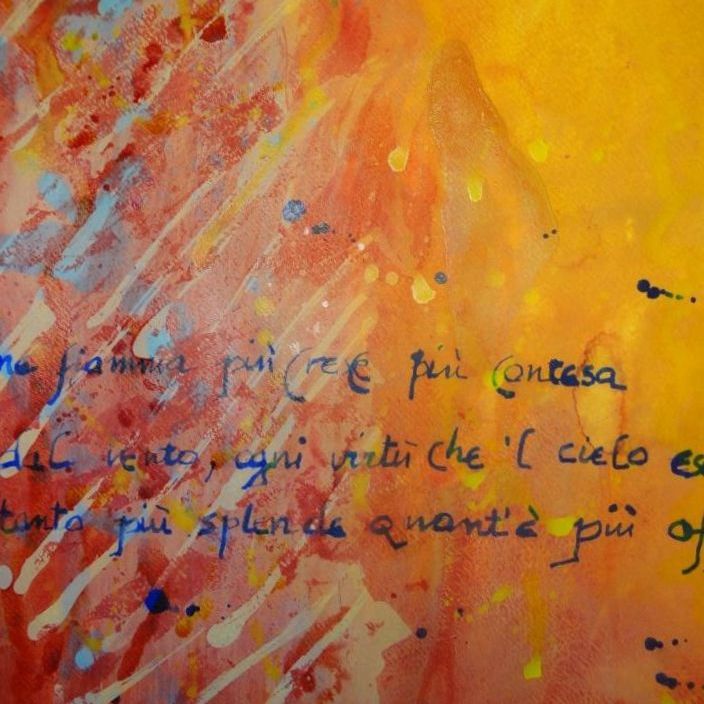 me fiamma più cresce più contesa
dal vento, ogni virtù che 'l cielo es
tanto più splende quant'è più of